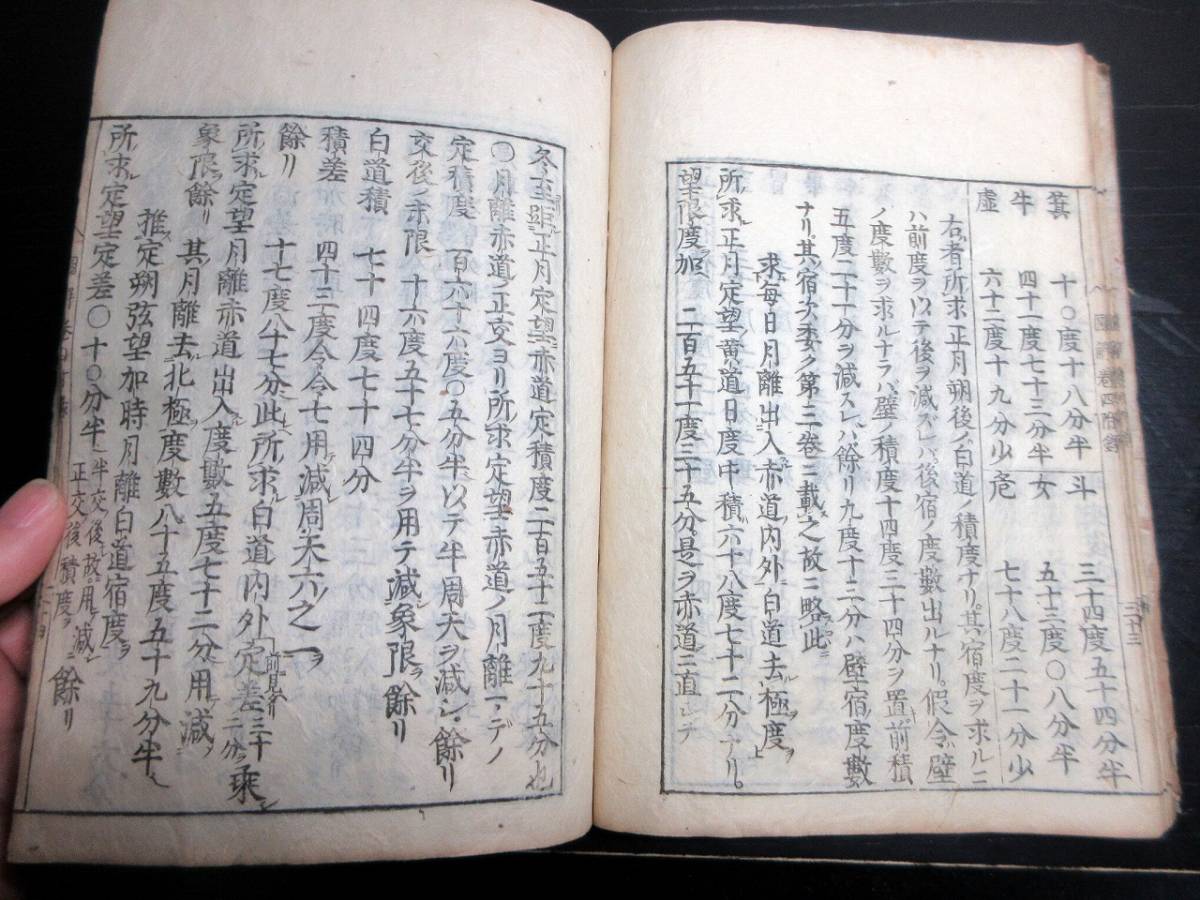 箕 十〇度十八分半 斗 三十四度五十四分半
牛 四十一度七十三分半 女 五十三度〇八分半
虚 六十二度十九分少 危 七十八度二十一分少
右者所求正月朔後ノ白道ノ積度ナリ其宿度ヲ求ルニ
ハ前度ヲ以テ後ヲ減スレハ後宿ノ度數出ルナリ假令壁
ノ度數ヲ求ルナラハ壁ノ積度十四度三十四分ヲ置前積
五度二十一分ヲ減スレハ餘リ九度十三分ハ壁宿ノ度數
ナリ其ノ宿次委ク第三卷ニ載之故ニ略此
求毎日月離出入赤道内外白道去極度
所求正月定望黄道日度中積六十八度七十二分ナリ上
望限度加 二百五十一度三十五分是ヲ赤道ニ直シテ
冬至距正月定望赤道定積度二百五十二度九十五分也
〇月離赤道ノ正交ヨリ所求定望赤道ノ月離マデノ
定積度 百六十六度〇五分半以テ半周天ヲ減シ餘リ
交後ノ赤限 十六度五十七分半ヲ用テ減象限餘リ
白道積 七十四度七十四分
積差 四十三度令令七用減周天六之一ヲ
餘リ 十七度八十七分此所求白道内外定差三十二分乘
所求定望月離赤道出入度數五度七十二分用減
象限餘リ 其月離去北極度數八十五度五十九分半
推定朔弦望加時月離白道宿度
所求定望定差〇十〇分半 半交後故用減正交後積度ヲ餘リ